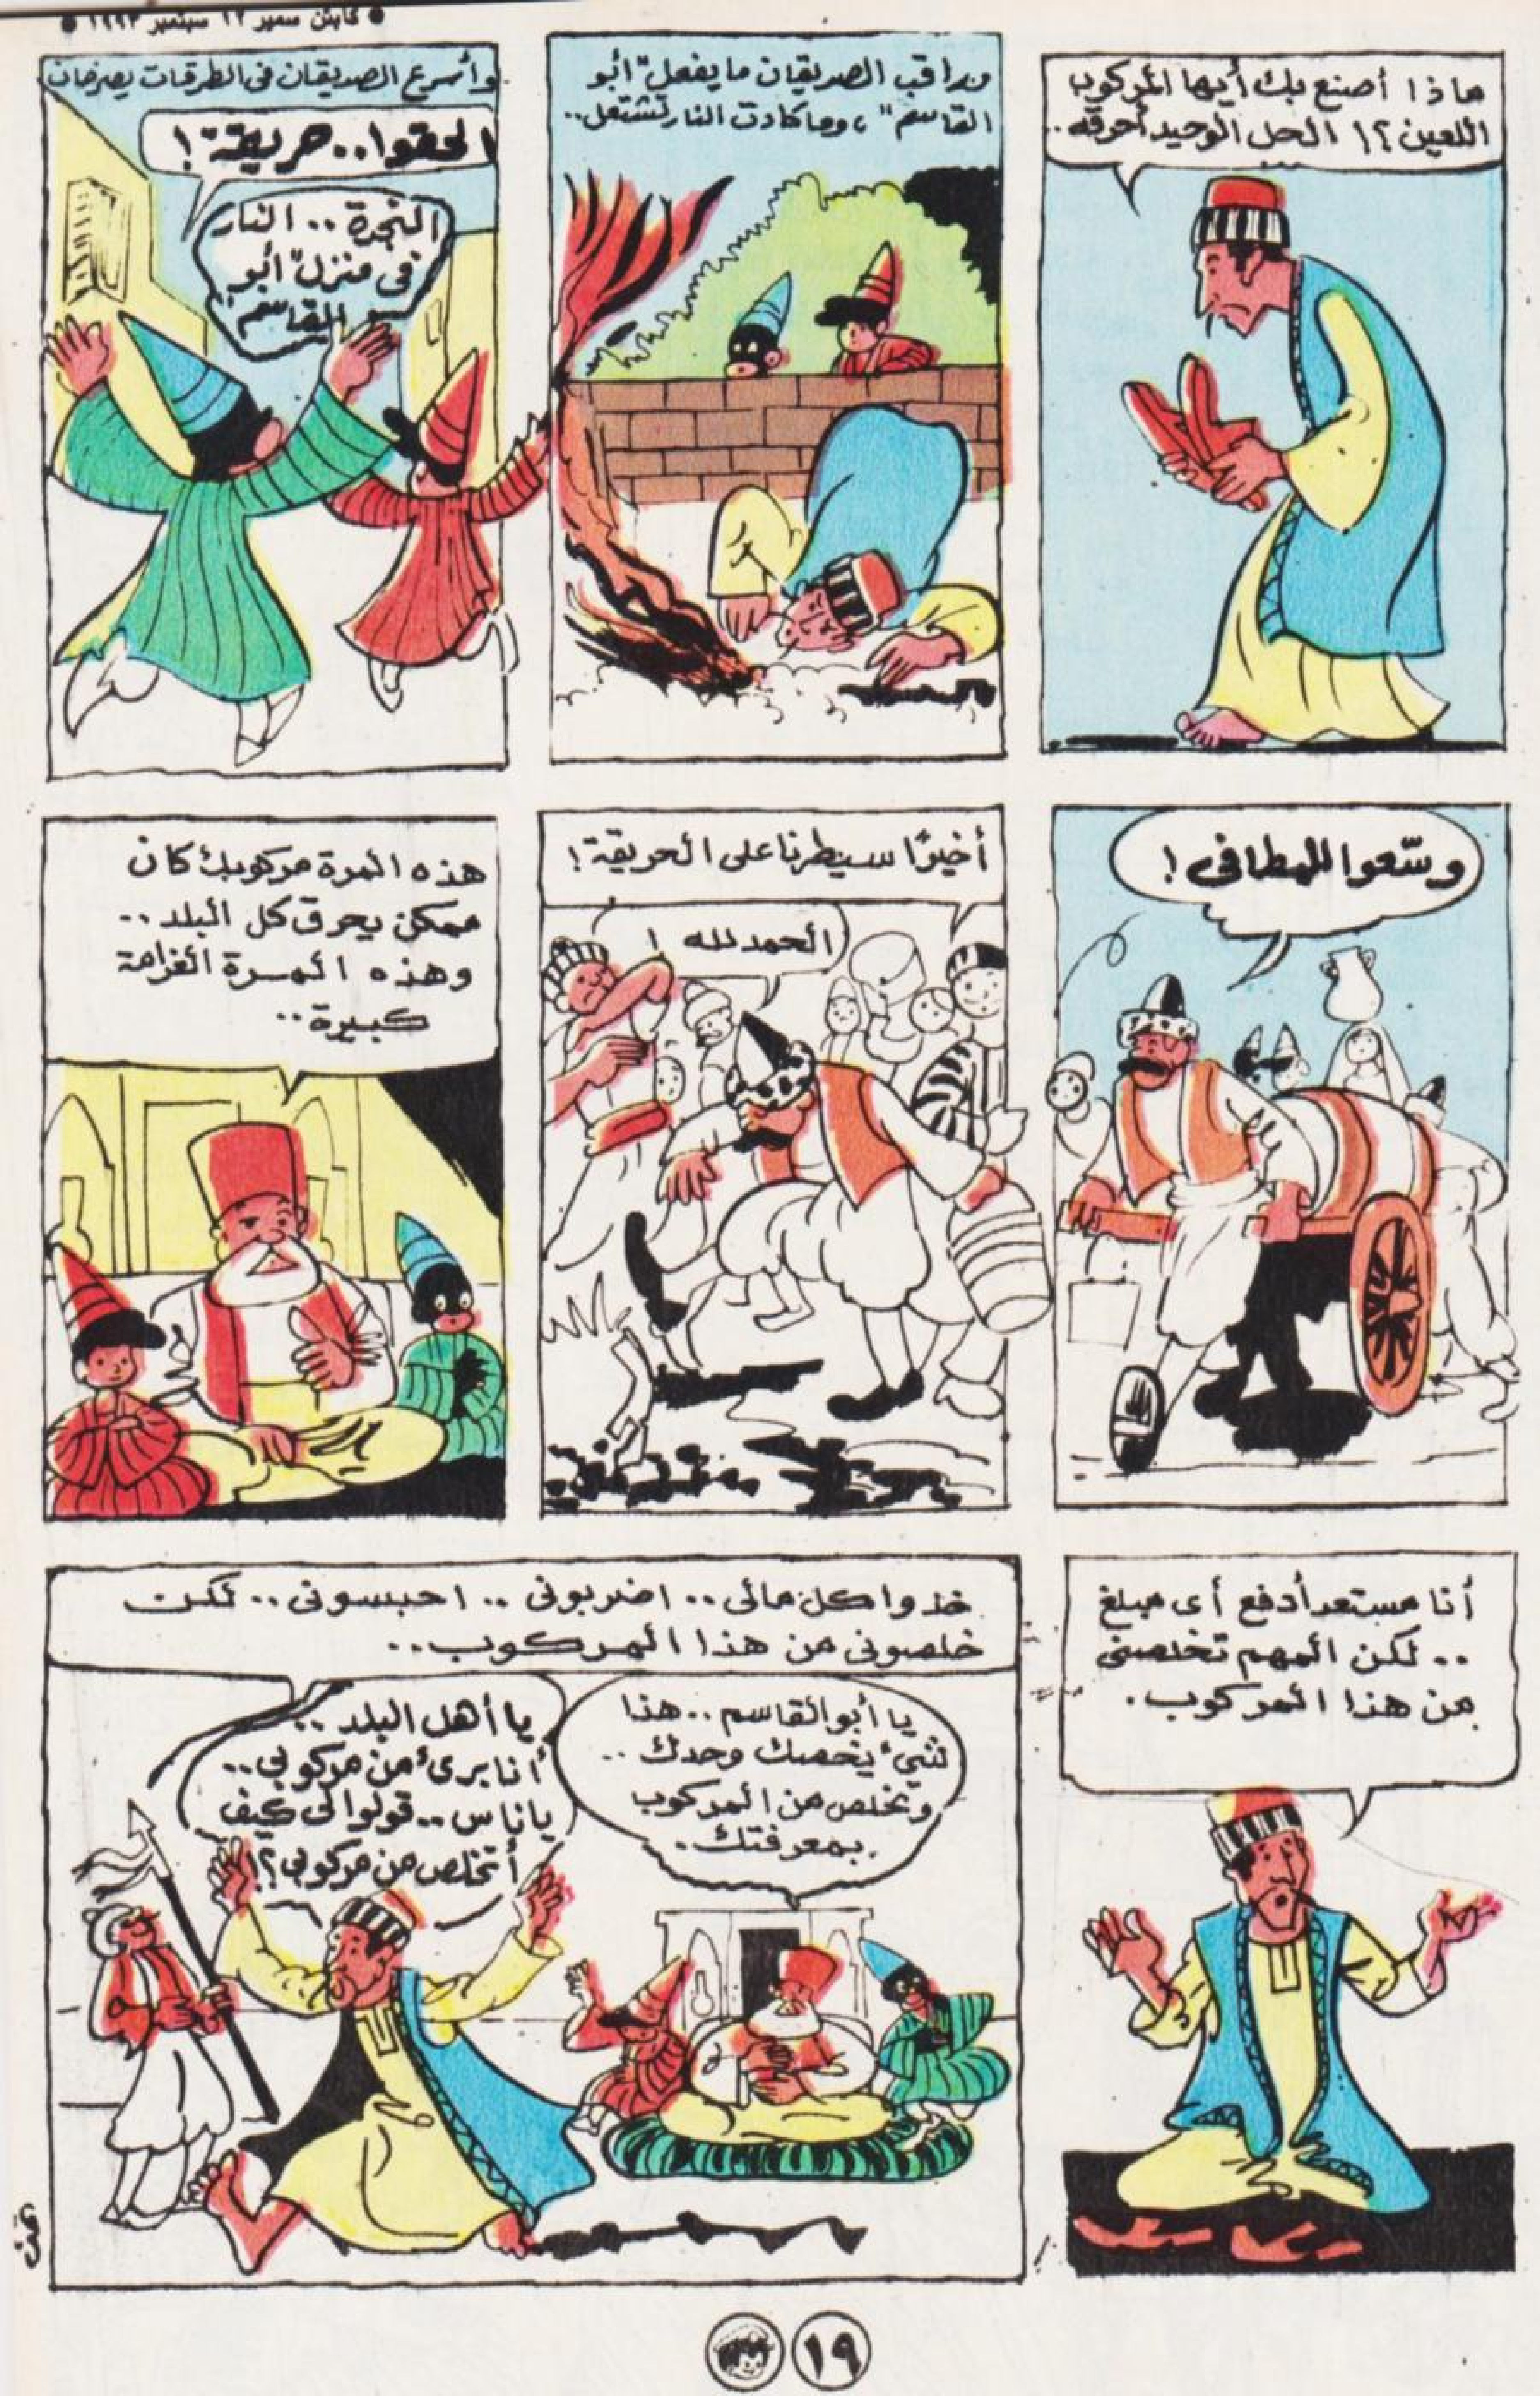 ● كابتن سمير ١٢ سبتمبر ١٩٩٣ ●
ماذا أصنع بك أيها المركوب
اللعين؟! الحل الوحيد أحرقه..
وراقب الصديقان ما يفعل "أبو
القاسم"، وما كادت النار تشتعل..
وأسرع الصديقان فى الطرقات يصرخان
الحقوا.. حريقة!
النجدة.. النار
فى منزل "أبو
القاسم"
وسّعوا للمطافى!
أخيرًا سيطرنا على الحريقة!
الحمد لله!
هذه المرة مركوبك كان
ممكن يحرق كل البلد..
وهذه المرة الغرامة
كبيرة..
أنا مستعد أدفع أى مبلغ
.. لكن المهم تخلصنى
من هذا المركوب.
خذوا كل مالى.. اضربونى.. احبسونى.. لكن
خلصونى من هذا المركوب..
يا أبو القاسم.. هذا
شيء يخصك وحدك..
وتخلص من المركوب
بمعرفتك.
يا أهل البلد..
أنا برىء من مركوبى..
يا ناس.. قولوا لى كيف
أتخلص من مركوبى؟!
١٩